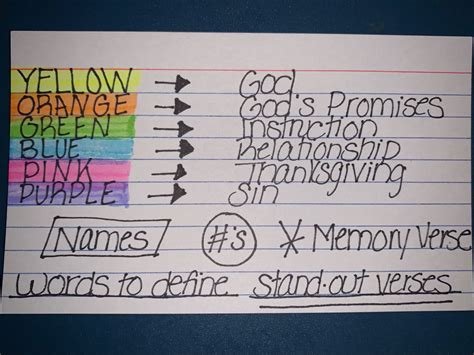 YELLOW → God
ORANGE → God's Promises
GREEN → Instruction
BLUE → Relationship
PINK → Thanksgiving
PURPLE → Sin
Names #'s * Memory Verse
Words to define stand-out verses